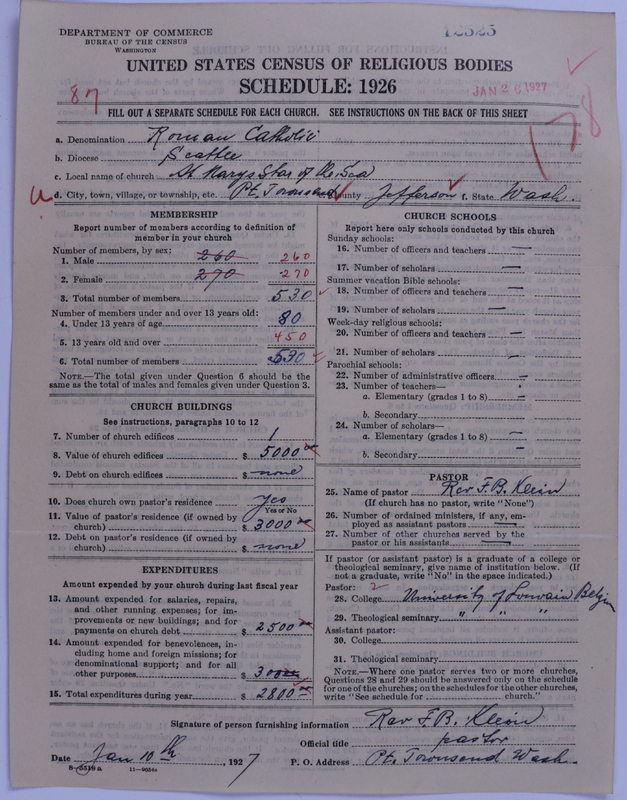 DEPARTMENT OF COMMERCE
BUREAU OF THE CENSUS
WASHINGTON
12323
UNITED STATES CENSUS OF RELIGIOUS BODIES
SCHEDULE: 1926
JAN 26 1927
87
178
FILL OUT A SEPARATE SCHEDULE FOR EACH CHURCH. SEE INSTRUCTIONS ON THE BACK OF THIS SHEET
a. Denomination Roman Catholic
b. Diocese Seattle
c. Local name of church St Marys Star of the Sea
d. City, town, village, or township, etc. Pt. Townsend County Jefferson f. State Wash.
MEMBERSHIP
Report number of members according to definition of
member in your church
Number of members, by sex:
1. Male 260 260
2. Female 270 270
3. Total number of members 530
Number of members under and over 13 years old:
4. Under 13 years of age 80
5. 13 years old and over 450
6. Total number of members 530
NOTE.—The total given under Question 6 should be the
same as the total of males and females given under Question 3.
CHURCH BUILDINGS
See instructions, paragraphs 10 to 12
7. Number of church edifices 1
8. Value of church edifices $ 5000
9. Debt on church edifices $ none
10. Does church own pastor's residence yes
Yes or No
11. Value of pastor's residence (if owned by
church) $ 3000
12. Debt on pastor's residence (if owned by
church) $ none
EXPENDITURES
Amount expended by your church during last fiscal year
13. Amount expended for salaries, repairs,
and other running expenses; for im-
provements or new buildings; and for
payments on church debt $ 2500
14. Amount expended for benevolences, in-
cluding home and foreign missions; for
denominational support; and for all
other purposes $ 300
15. Total expenditures during year $ 2800
CHURCH SCHOOLS
Report here only schools conducted by this church
Sunday schools:
16. Number of officers and teachers —
17. Number of scholars —
Summer vacation Bible schools:
18. Number of officers and teachers —
19. Number of scholars —
Week-day religious schools:
20. Number of officers and teachers —
21. Number of scholars —
Parochial schools:
22. Number of administrative officers —
23. Number of teachers—
a. Elementary (grades 1 to 8) —
b. Secondary
24. Number of scholars—
a. Elementary (grades 1 to 8) —
b. Secondary —
PASTOR
25. Name of pastor Rev F. B. Klein
(If church has no pastor, write "None")
26. Number of ordained ministers, if any, em-
ployed as assistant pastors —
27. Number of other churches served by the
pastor or his assistants —
If pastor (or assistant pastor) is a graduate of a college or
theological seminary, give name of institution below. (If
not a graduate, write "No" in the space indicated.)
Pastor: 2
28. College University of Louvain Belgium
29. Theological seminary " " "
Assistant pastor:
30. College
31. Theological seminary
NOTE.—Where one pastor serves two or more churches,
Questions 28 and 29 should be answered only on the schedule
for one of the churches; on the schedules for the other churches,
write "See schedule for church."
Signature of person furnishing information Rev F. B. Klein
Official title pastor
Date Jan 10th, 1927 P. O. Address Pt. Townsend Wash
8—5518a 11—9054a